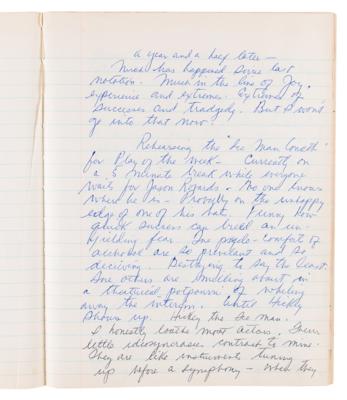 a year and a half later —
Much has happened since last
notation. Much in the line of Joy,
experience and extreme. Extremes of
successes and tradgedy. But I won't
go into that now.
Rehearsing the "Ice Man Cometh"
for Play of the week — Currently on
a 5 minute break while everyone
waits for Jason Robards. No one knows
where he is — Probably on the unhappy
edge of one of his bats. Funny how
quick success can breed an un-
yielding fear. The psyedo-comfort of
alcohol are so prevelant and so
deceiving. Destroying to say the least.
The others are milling about in
a theatrical potpourri of whiling
away the interim. Until Hickey
shows up. Hickey the Ice man.
I honestly loathe most actors. Their
little ideosyncrasies contrast to mine.
They are like instruments tuning
up before a symphony — When they